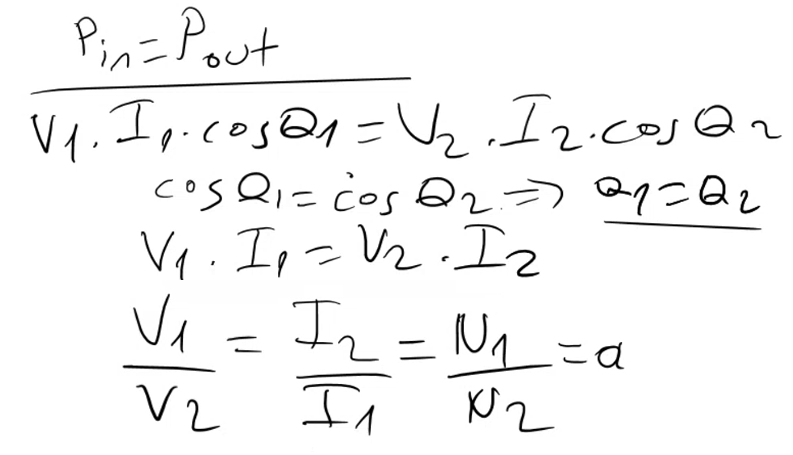 Pin = Pout
V1 . I1 . cosθ1 = V2 . I2 . cosθ2
cosθ1 = cosθ2 => θ1 = θ2
V1 . I1 = V2 . I2
V1/V2 = I2/I1 = N1/N2 = a